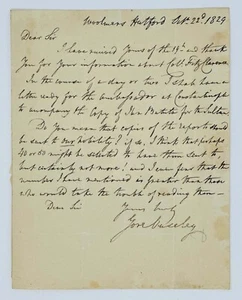 Woolmers Hertford Oct. 22d 1829
Dear Sir
I have received yours of the 19th and thank
you for your information about Coll. FitzClarence
In the course of a day or two I shall have a
letter ready for the Ambassador at Constantinople
to accompany the Copy of Ibn Batuta for the Sultan
Do you mean that copies of the reports should
be sent to any nobility? if so, I think that perhaps
40 or 50 might be selected to have them sent to,
but certainly not more; and I even fear that the
number I have mentioned is greater than those
who would take the trouble of reading them—
Dear Sir
Yours truly
Gore Ouseley